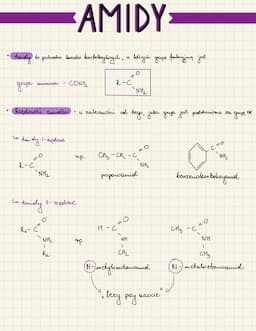 AMIDY
• Amidy to pochodne kwasów karboksylowych, w których grupą funkcyjną jest
grupa amidowa - CONH₂
R-C
O
NH₂
• - w zależności od tego, jaka grupa jest podstawiona za grupę OH
↳ amidy 1-rzędowe
R-C
O
NH₂
np.
CH₃-CH₂-C
O
NH₂
propanamid
C
O
NH₂
benzenokarboksyamid
↳ amidy 2-rzędowe
R₁-C
O
NH
R₂
np.
H-C
O
NH
CH₃
N-metylometanoamid
CH₃-C
O
NH
CH₃
N-metyloetanoamid
"leży przy azocie"